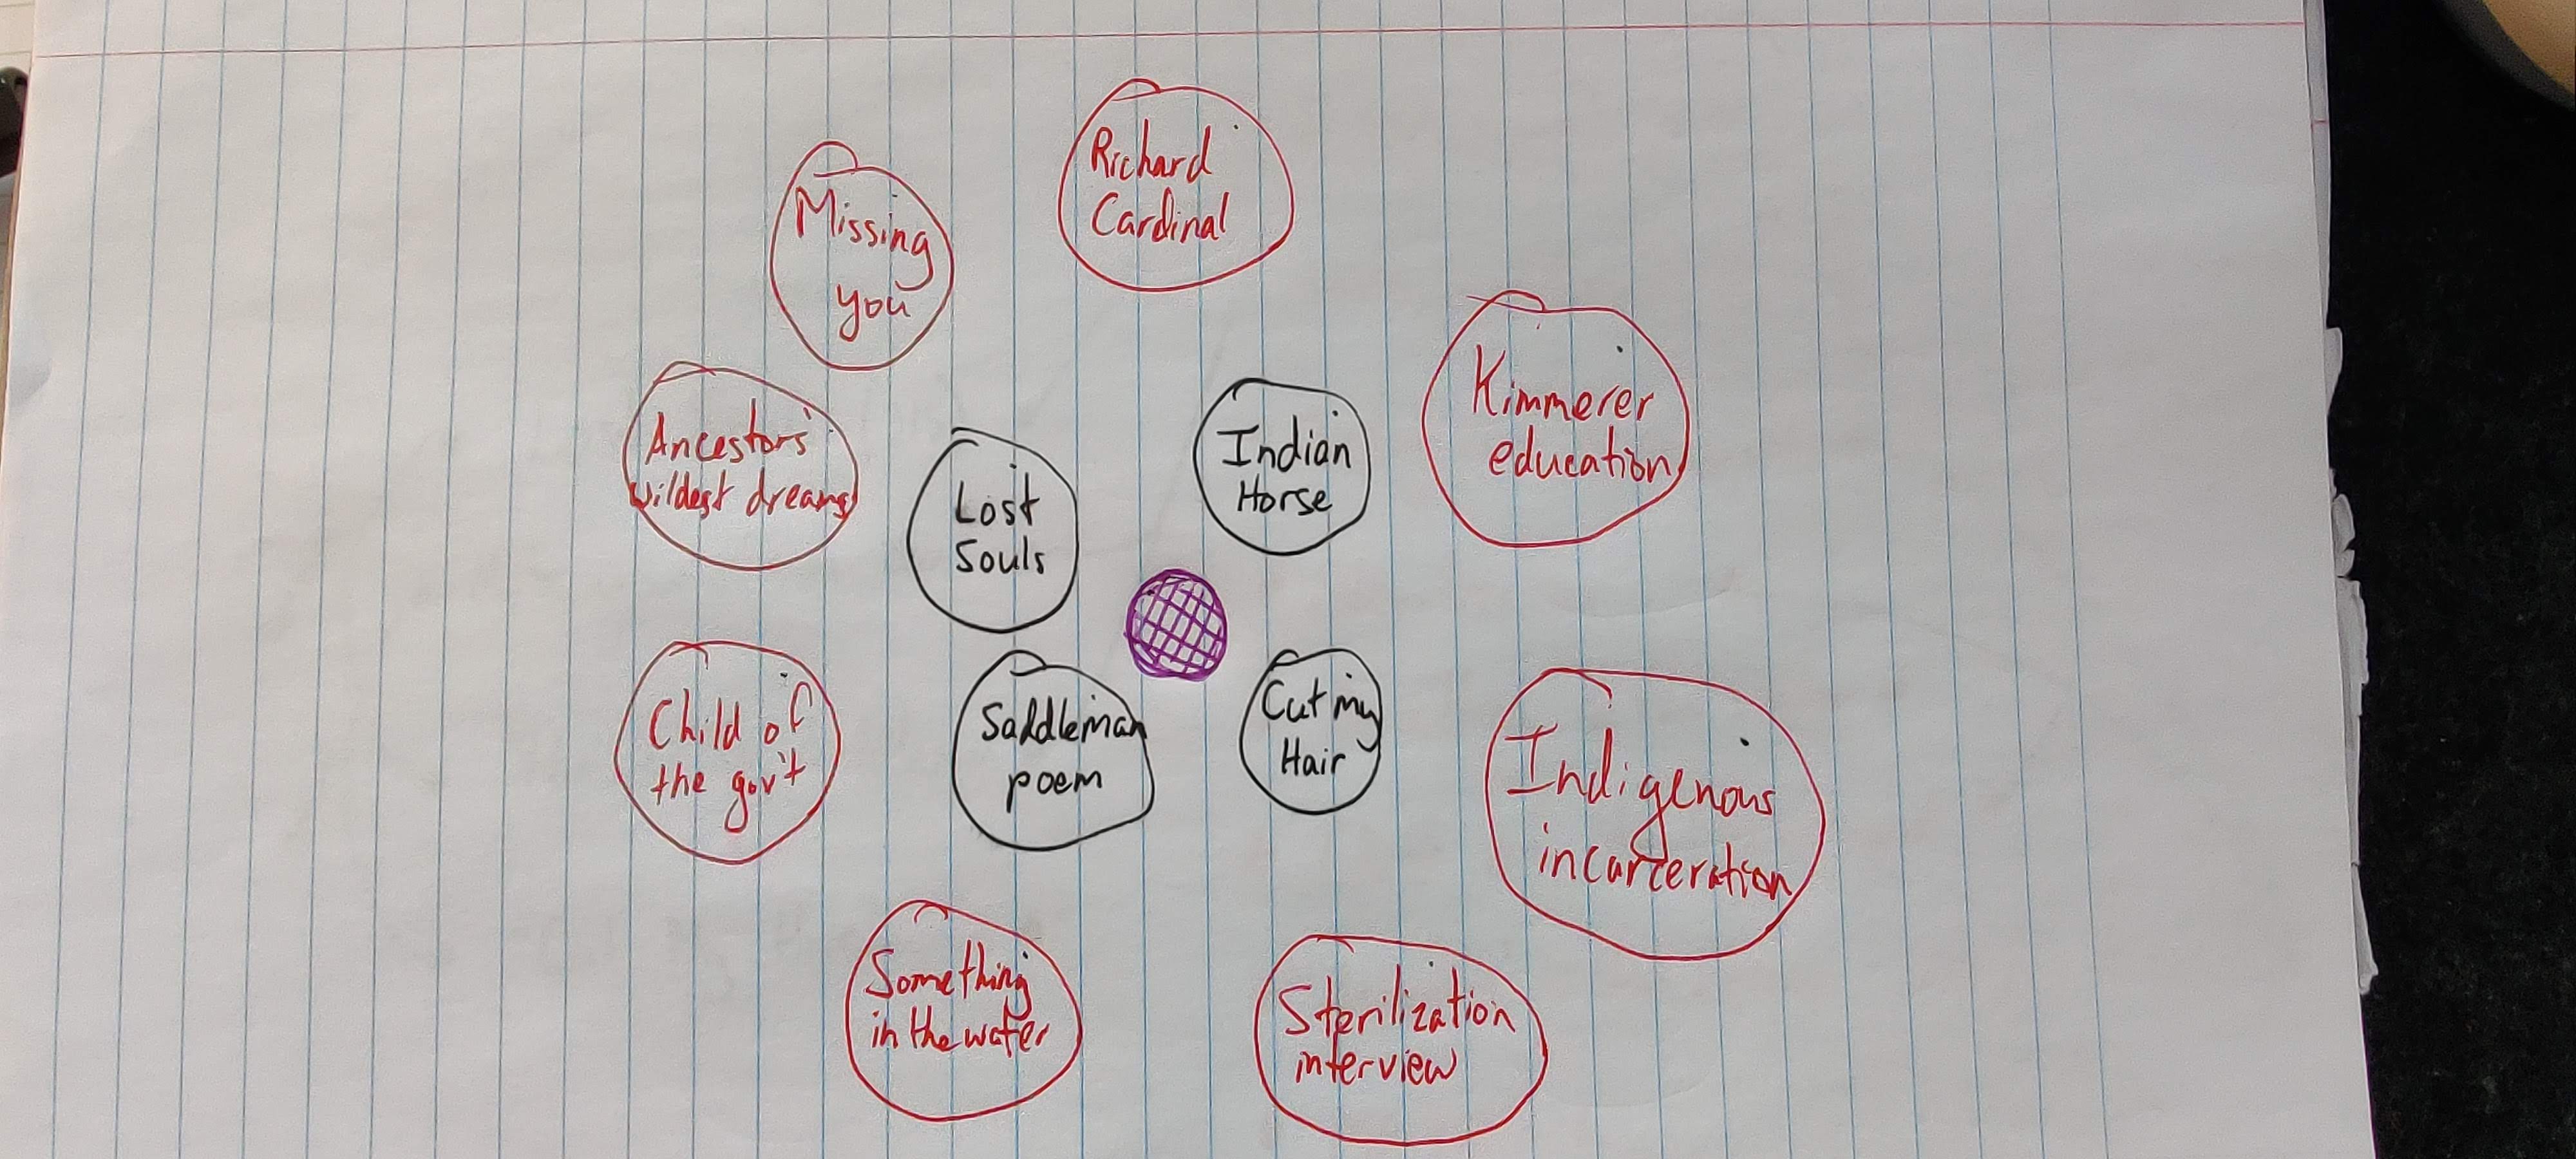 Richard
Cardinal
Missing
you
Kimmerer
education
Ancestors'
wildest dreams
Indian
Horse
Lost
Souls
Child of
the gov't
Saddleman
poem
Cut my
Hair
Indigenous
incarceration
Something
in the water
Sterilization
interview